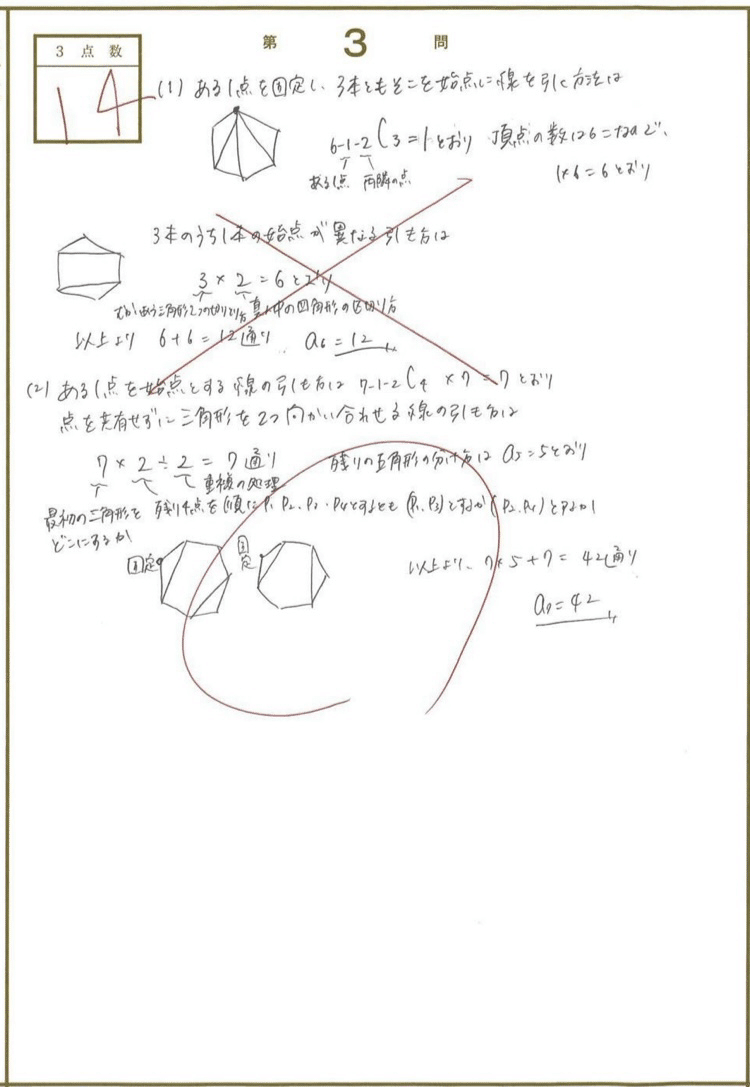 第 3 問
3 点 数
14
(1) ある1点を固定し、3本ともそこを始点に線を引く方法は
6-1-2C3=1とおり 頂点の数は6こなので、
ある1点 両隣の点
1×6=6とおり
3本のうち1本の始点が異なる引き方は
3×2=6とおり
むかいあう三角形2つの切りとり方 真ん中の四角形の区切り方
以上より 6+6=12通り a6=12
(2) ある1点を始点とする線の引き方は 7-1-2C4 ×7=7とおり
点を共有せずに三角形を2つ向かい合わせる線の引き方は
7×2÷2=7通り 残りの五角形の分け方は a5=5とおり
重複の処理
最初の三角形を 残り4点を順にP1、P2、P3、P4とするとも (P1、P3)とするか(P2、P4)とするか
どこにするか
固定 固定
以上より、7×5+7=42通り
a7=42